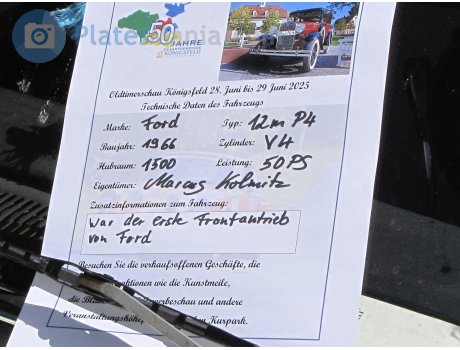 PlatesMania
50
JAHRE
KÖNIGSFELD
Oldtimerschau Königsfeld 28. Juni bis 29 Juni 2025
Technische Daten des Fahrzeugs
Marke: Ford Typ: 12m P4
Baujahr: 1966 Zylinder: V4
Hubraum: 1500 Leistung: 50PS
Eigentümer: Marcus Kolmitz
Zusatzinformationen zum Fahrzeug:
War der erste Frontantrieb
von Ford
Besuchen Sie die verkaufsoffenen Geschäfte, die
aktionen wie die Kunstmeile,
die erbeschau und andere
Veranstaltungshöhe Kurpark.